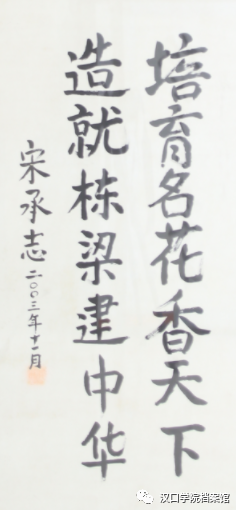 培育名花香天下
造就栋梁建中华
宋承志二〇〇三年十一月
汉口学院档案馆